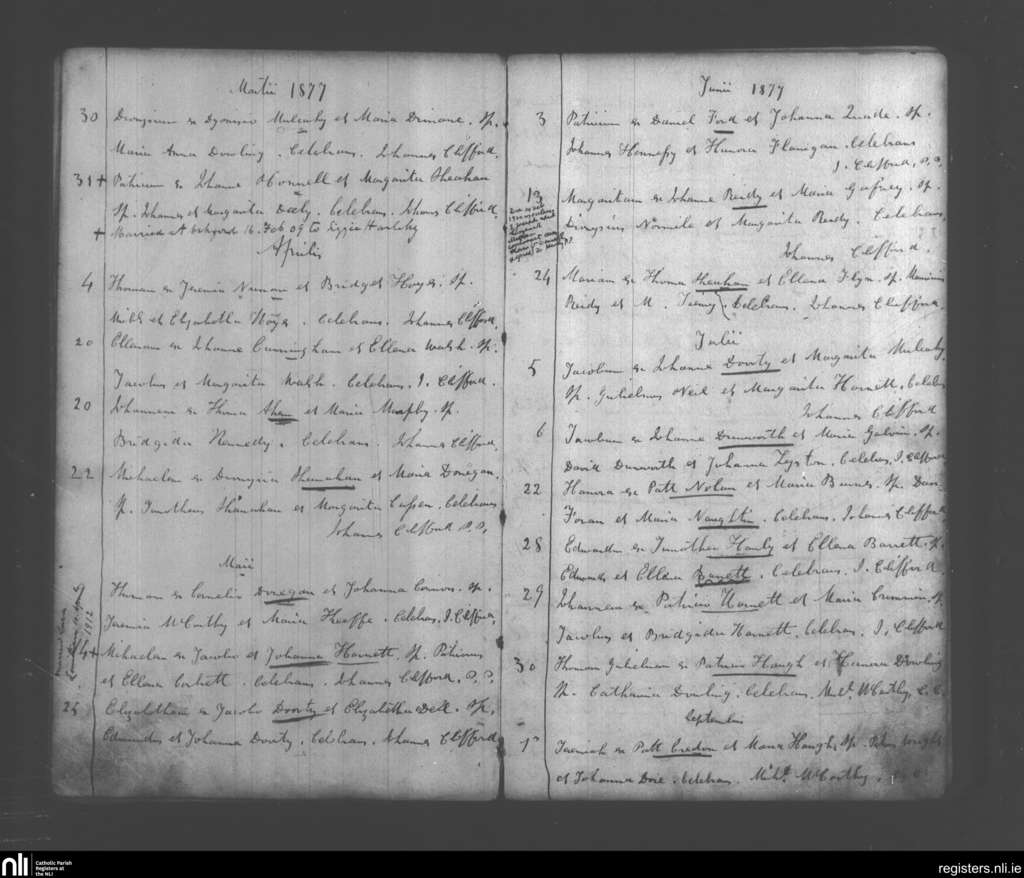 Martii 1877
30 Dionysium ex Dyonisio Mulcahy et Maria Dinane. Sp.
Maria Anna Dowling. Celebrans. Johannes Clifford.
31+ Patricium ex Johanne O'Connell et Margarita Sheahan
Sp. Johannes et Margarita Deely. Celebrans. Johannes Clifford.
+ Married at 16. Feb 09 to Lizzie Hartchy
Aprilis
4 Thomam ex Jeremia Nunan et Bridget Hayes. Sp.
Mihl et Elizabetha Hayes. Celebrans. Johannes Clifford.
20 Ellenam ex Johanne Cunningham et Ellena Walsh. Sp.
Jacobus et Margarita Walsh. Celebrans. J. Clifford.
20 Johannem ex Thoma Ahern et Maria Murphy. Sp.
Bridgida Kennedy. Celebrans. Johannes Clifford.
22 Michaelem ex Dionysio Shanahan et Maria Donegan.
Sp. Timotheus Shanahan et Margarita Cussen. Celebrans
Johannes Clifford P.P.
Maii
Thomam ex Cornelio Donegan et Johanna Connors. Sp.
Jeremia McCarthy et Maria Keeffe. Celebrans. J. Clifford.
+ Michaelem ex Jacobo et Johanna Harnett. Sp. Patricius
et Ellena Corbett. Celebrans. Johannes Clifford. P.P.
1912
25 Elizabetham ex Jacobo Doorty et Elizabetha Dell. Sp.
Edmundus et Johanna Doorty. Celebrans. Johannes Clifford
Junii 1877
3 Patricium ex Daniel Ford et Johanna Quade. Sp.
Johannes Hennessy et Hanora Flanegan. Celebrans
J. Clifford, P.P.
13 Margaritam ex Johanne Reidy et Maria Gafney. Sp.
Dionysius Normile et Margarita Reidy. Celebrans
Johannes Clifford.
24 Mariam ex Thoma Sheehan et Ellena Flynn. Sp.
Reidy et M. Celebrans. Johannes Clifford.
Julii
5 Jacobum ex Johanne Doorty et Margarita Mulcahy
Sp. Gulielmus Neil et Margarita Harnett. Celebrans
Johannes Clifford
6 Jacobum ex Johanne Dunworth et Maria Galvin. Sp.
David Dunworth et Johanna Lyston. Celebrans, J. Clifford
22 Hanora ex Patt Nolan et Maria Barnes. Sp.
Foran et Maria Naughtin. Celebrans. Johannes Clifford
28 Edwardum ex Timotheo Hanly et Ellena Barrett. Sp.
Edmundus et Ellena Barrett. Celebrans. J. Clifford.
29 Johannem ex Patricio Harnett et Maria Cronin. Sp.
Jacobus et Bridgida Harnett. Celebrans. J. Clifford
30 Thomam Gulielmum ex Patricio Haugh et Honora Dowling
Sp. Catharina Dowling. Celebrans. Michl. McCarthy, C.C.
Septembris
Jeremiah ex Patt Credon et Maria Haugh. Sp.
et Johanna Dore. Celebrans. Michl. McCarthy. C.C.
nli
Catholic Parish
Registers at
the NLI
registers.nli.ie